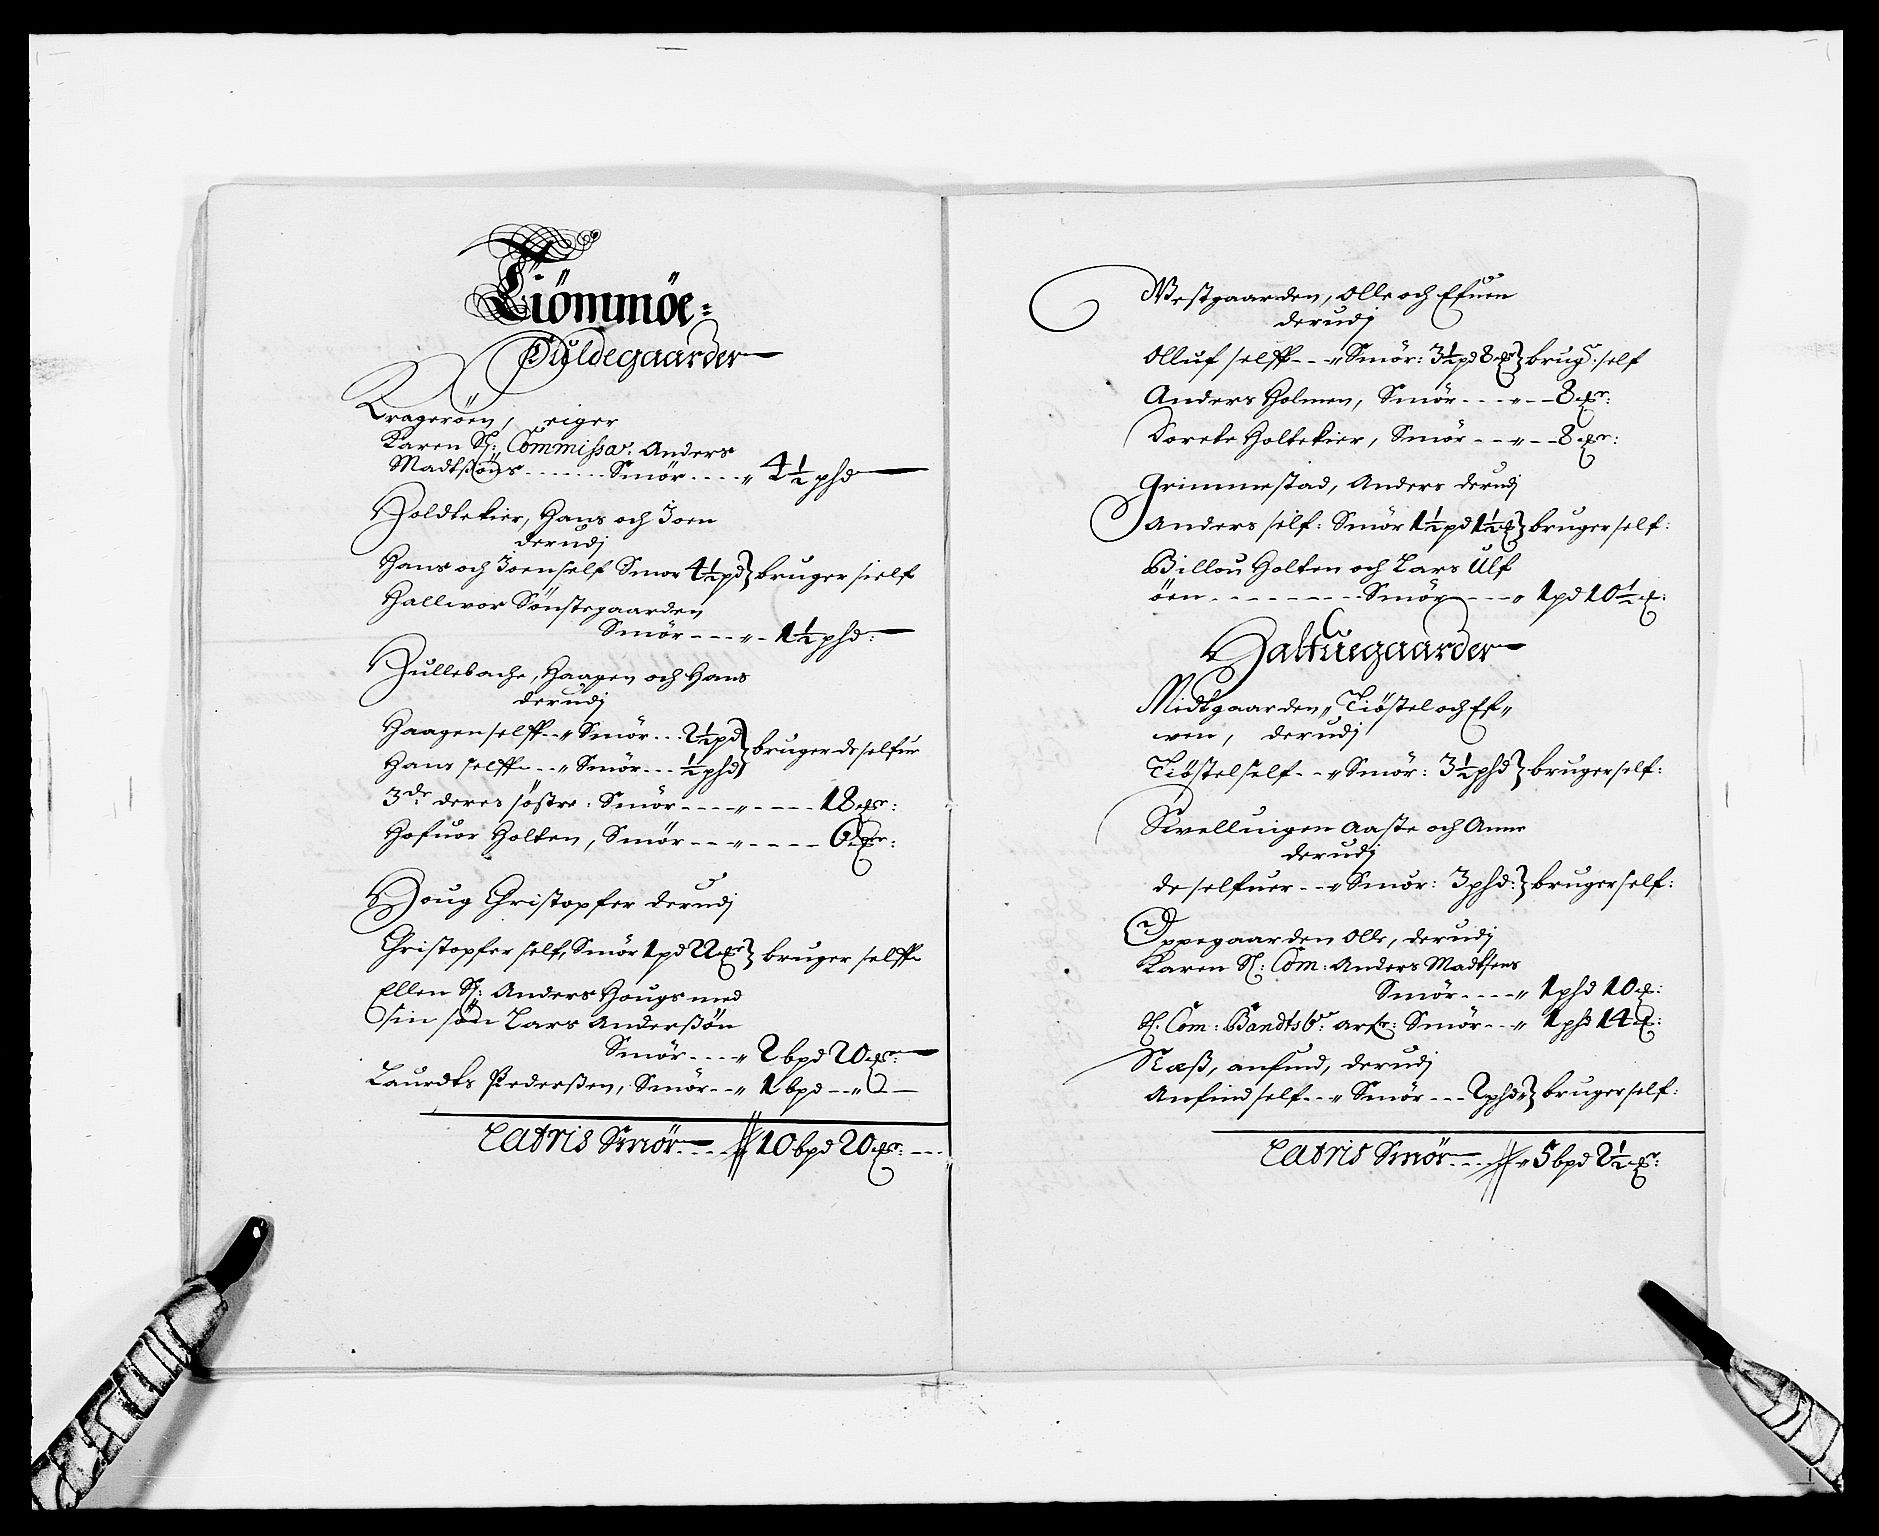 Tiömmöe
Fuldegaarder
Krageröen, eiger
Karen Sl: Commissar: Anders
Madtsöns ....... Smör .... „ 4½ phd
Holdtekier, Hans och Joen
derudj
Hans och Joen self Smör 4½ pd } bruger sielf
Hallwor Sönstegaarden
Smör --- „ - 1½ phd:
Hullebache, Haagen och Hans
derudj
Haagen selff -- „ Smör --- 2½ pd } bruger de selfuer
Hans selff --- „ Smör --- ½ phd
3de deres söstre: Smör ---- „ ---- 18 mr:
Hofuor Holten, Smör --- „ ---- 6 mr:
Houg Christopfer derudj
Christopfer self, Smör 1 pd 22 mr } bruger selff
Ellen Sl: Anders Hougs med
sin sön Lars Anderßön
Smör ---- „ 2 bpd 20 mr:
Lauridts Pederßen, Smör -- „ 1 bpd -- „ --
Lateris Smör .... 10 bpd 20 mr: ---
Westgaarden, Olle och Efuen
derudj
Olluf selff -- „ Smör: 3½ pd 8 mr } brugr. self
Anders Holmen, Smör ---- „ -- 8 mr:
Dorete Holtekier, Smör --- „ -- 8 mr:
Grimmestad, Anders derudj
Anders self: Smör 1½ pd 1½ mr } bruger self:
Billou Holten och Lars Ulf
öen --------- Smör ---- „ 1 pd 10½ mr:
Halfuegaarder
Midtgaarden, Tiöstel och Ef„
ven, derudj
Tiöstel self --- „ Smör: 3½ phd } bruger self:
Swelluigen Aaste och Anne
derudj
de selfuer --- „ Smör: 3 phd: } bruger self:
Oppegaarden Olle, derudj
Karen Sl: Com: Anders Madtsens
Smör ---- „ 1 phd 10 mr:
Sl. Com: Smör -- „ 1 phd 14 mr:
Næß, Anfind, derudj
Anfind self --- „ Smör --- 2 phd } bruger self:
Lateris Smör .... „ 5 bpd 2½ mr: